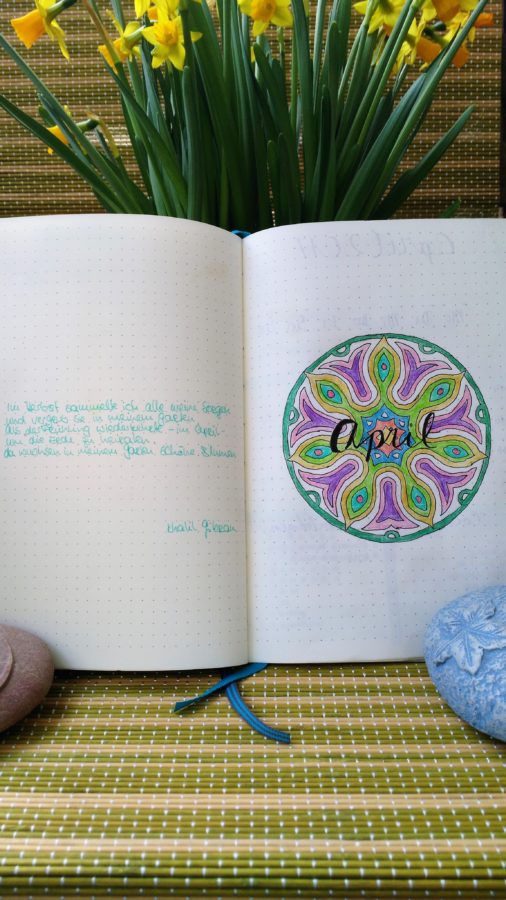 Im Herbst sammelte ich alle meine Sorgen
und vergrub sie in meinem Garten
als der Frühling wiederkehrte – im April
um die Erde zu heiraten,
da wuchsen in meinem Garten schöne Blumen
Khalil Gibran
April 2017
april